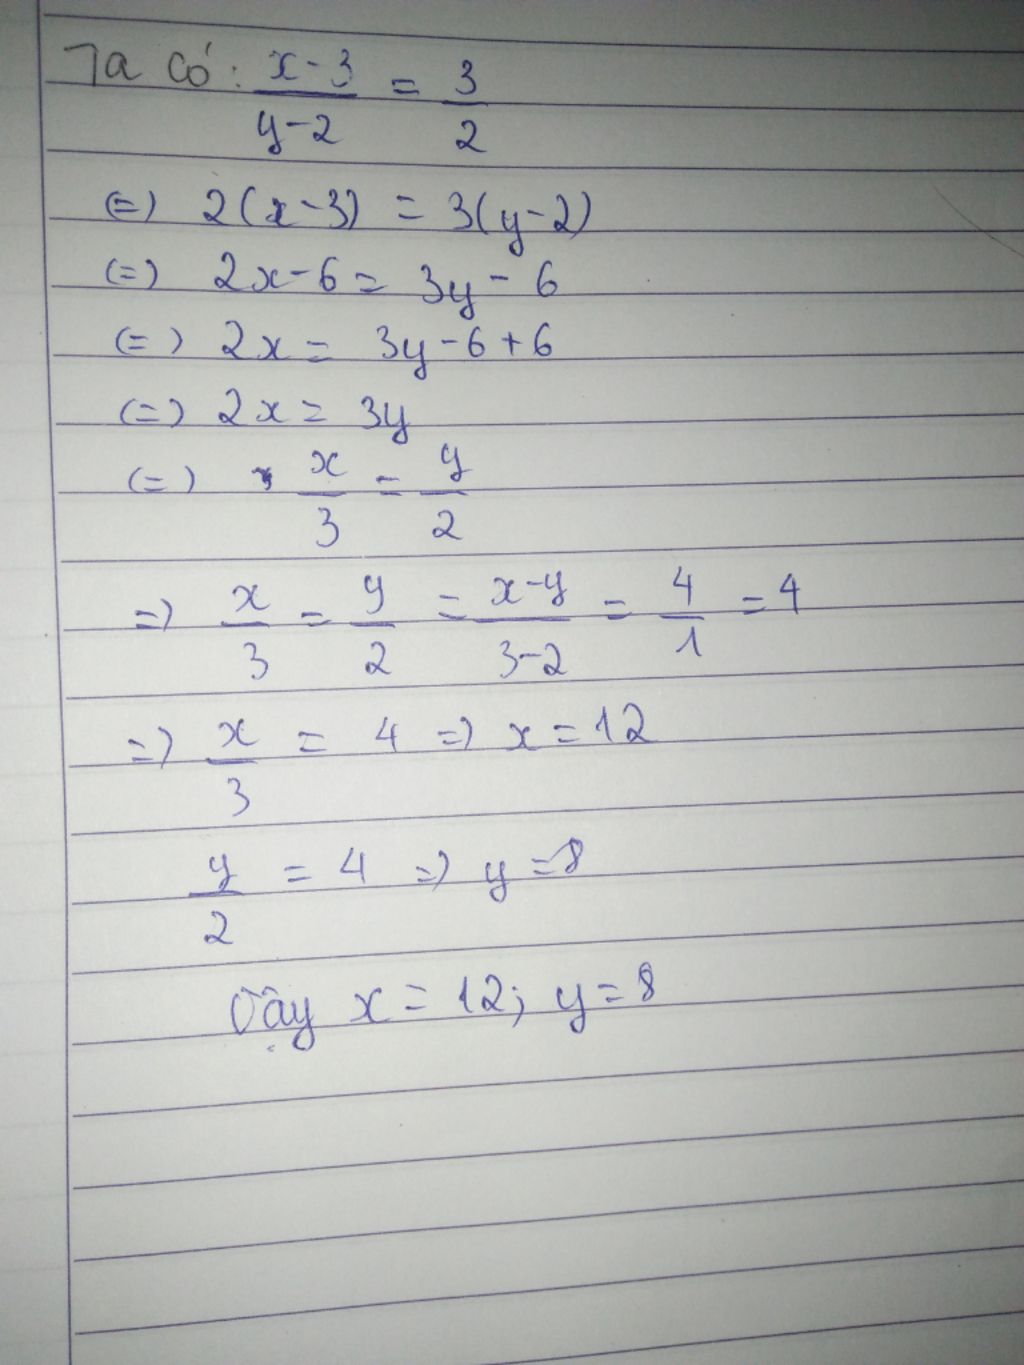 Ta có: x-3/y-2 = 3/2
(=) 2(x-3) = 3(y-2)
(=) 2x-6 = 3y-6
(=) 2x = 3y-6+6
(=) 2x = 3y
(=) x/3 = y/2
=) x/3 = y/2 = x-y/3-2 = 4/1 = 4
=) x/3 = 4 =) x = 12
y/2 = 4 =) y = 8
Vậy x = 12; y = 8